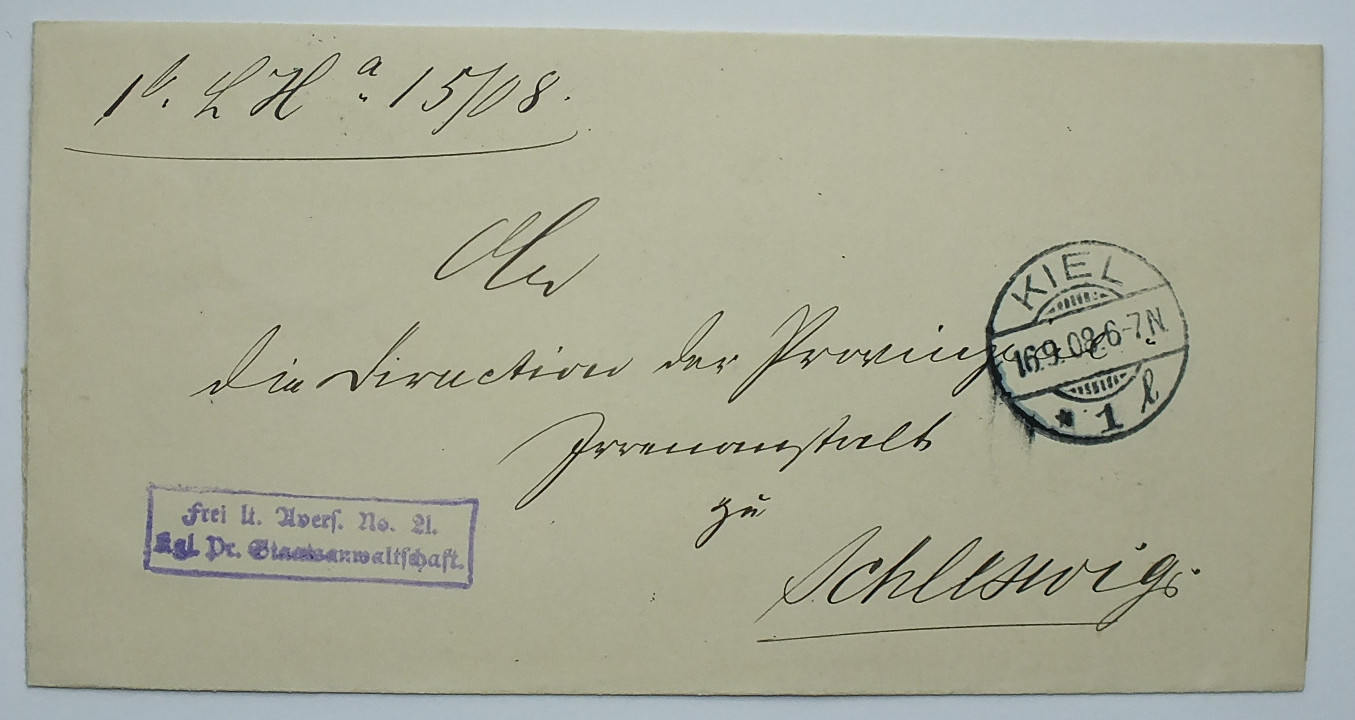 15/08.
An
die Direction der Provinzial
Irrenanstalt
zu
Schleswig.
KIEL
16.9.08.6-7N
* 1 l
Frei lt. Avers. No. 21.
Kgl. Pr. Staatsanwaltschaft.